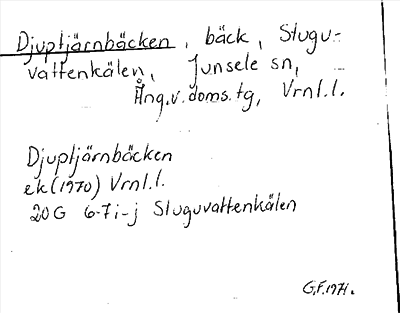 Djuptjärnbäcken, bäck, Stugu-
vattenkälen, Junsele sn,
Ång.v.doms.tg, Vrnl.l.
Djuptjärnbäcken
ek(1970) Vrnl.l.
20G 6-7i-j Stuguvattenkälen
G.F.1971.